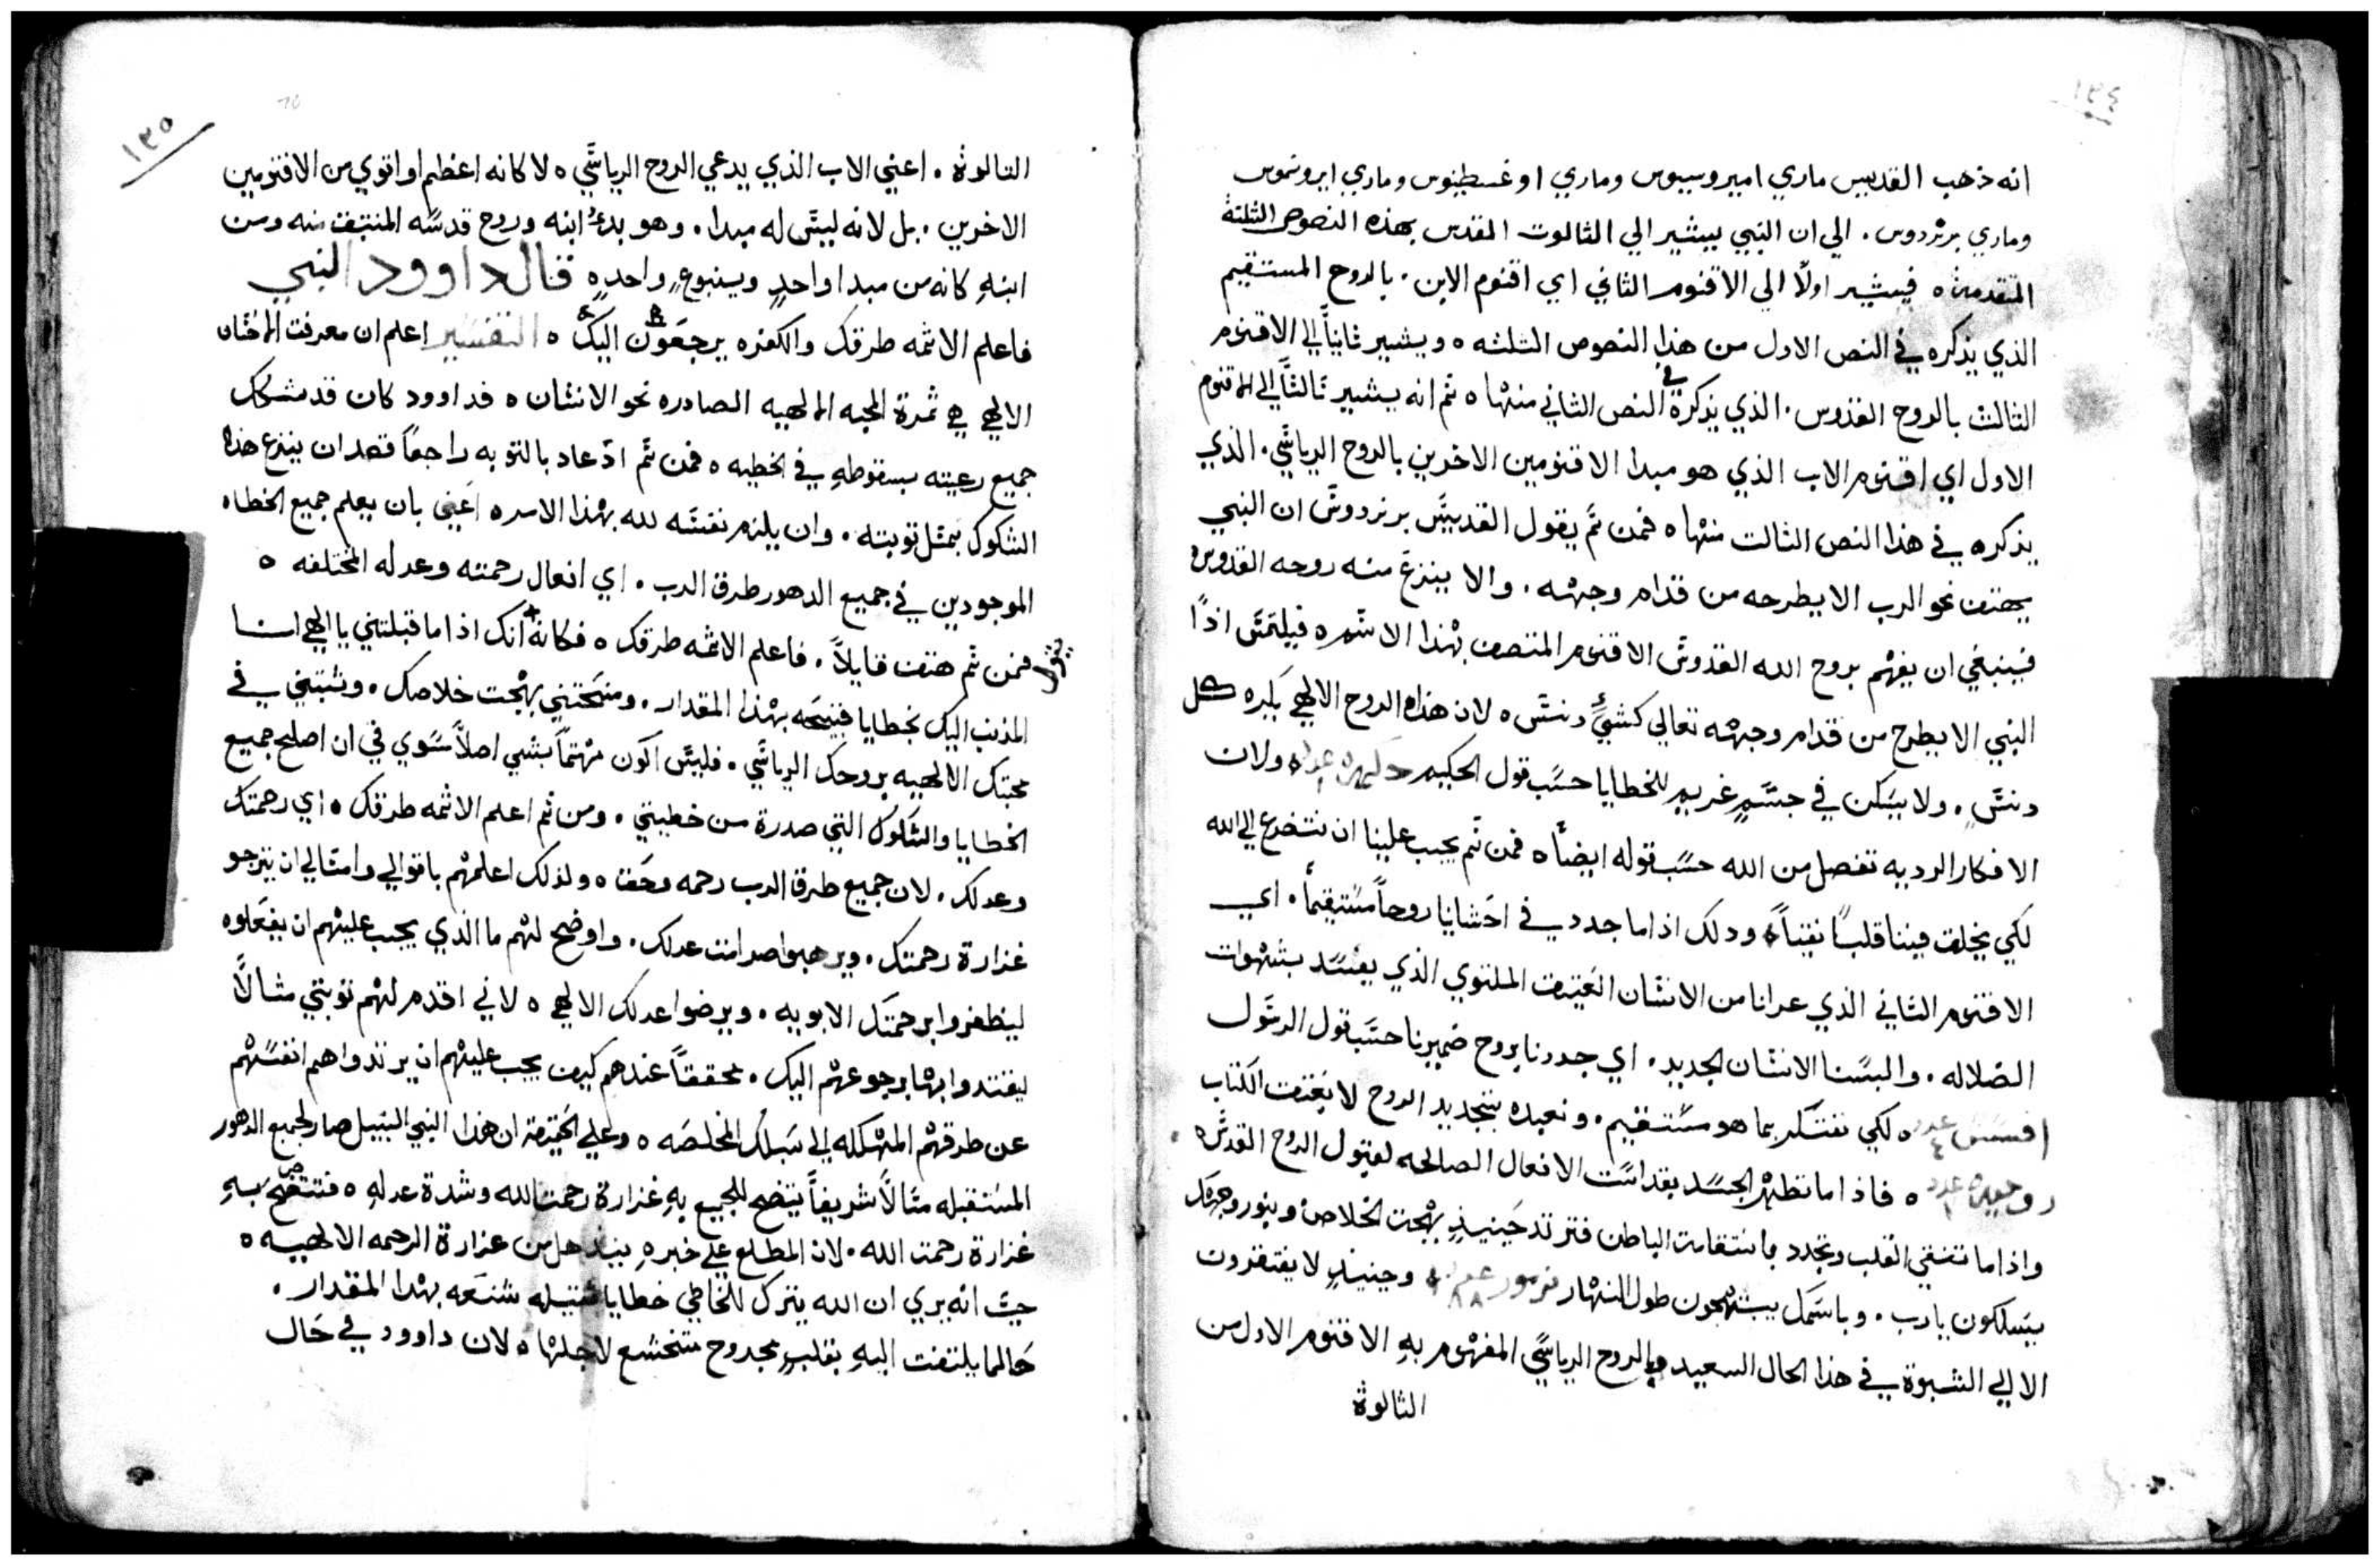 ١٣٤
انه ذهب القديس ماري امبروسيوس وماري اوغسطينوس وماري ايرونموس
وماري برنردوس . الي ان النبي يشير الي الثالوت المقدس بهذه النصوص الثلثة
المتقدمة ه فيشير اولًا الي الاقنوم الثاني اي اقنوم الابن . بالروح المستقيم
الذي يذكره في النص الاول من هذا النصوص الثلثه ه ويشير ثانيًا الي الاقنوم
الثالث بالروح القدوس . الذي يذكره في النص الثاني منها ه ثم انه يشير ثالثًا الي الاقنوم
الاول اي اقنوم الاب الذي هو مبدا الاقنومين الاخرين بالروح الرياسي . الذي
يذكره في هذا النص الثالث منها ه فمن ثم يقول القديس برنردوس ان النبي
يهتف نحو الرب الا يطرحه من قدام وجهه . والا ينزع منه روحه القدوس ه
فينبغي ان يفهم بروح الله القدوس الاقنوم المتصف بهذا الاسم ه فيلتمس اذًا
النبي الا يطرح من قدام وجهه تعالي كشيءٍ دنس ه لان هذا الروح الالهي يكره كل
دنسٍ . ولا يسكن في جسمٍ غريمٍ للخطايا حسب قول الحكيم حكمه عدد ولان
الافكار الرديه تفصل من الله حسب قوله ايضًا ه فمن ثم يجب علينا ان نتضرع الي الله
لكي يخلق فينا قلبًا نقيًا ه ودلك اذا ما جدد في احشايا روحًا مستقيمًا . اي
الاقنوم الثاني الذي عرانا من الانسان العتيق الملتوي الذي يفسد بشهوات
الضلاله . والبسنا الانسان الجديد . اي جددنا بروح ضميرنا حسب قول الرسول
افسس عدد ٤ ه لكي نفتكر بما هو مستقيم . ونعيده بتجديد الروح لا بعتق الكتاب
روميه عدد ه فاذا ما تطهر الجسد بقداست الافعال الصالحه لقبول الروح القدس ه
واذا ما تنقي القلب وتجدد باستقامت الباطن فترتد حينيذٍ بهجت الخلاص وبنور وجهك
يسلكون يا رب . وباسمك يبتهجون طول النهار مزمور عدد ٨٨ ه وحينيذٍ لا يفتقرون
الا الي الثبوة في هذا الحال السعيد بالروح الرياسي المفهوم بهِ الاقنوم الاول من
الثالوة
١٣٥
الثالوثة . اعني الاب الذي يدعي الروح الرياسي ه لا كانه اعظم او اقوي من الاقنومين
الاخرين . بل لانه ليس له مبدا . وهو بدءُ ابنه وروح قدسه المنبثق منه ومن
ابنهِ كانه من مبدا واحدٍ وينبوعٍ واحدٍ ه قال داوود النبي
فاعلم الاثمه طرقك والكفره يرجعون اليك ه التفسير اعلم ان معرفت الاحسان
الالهي هي ثمرة المحبه الالهيه الصادره نحو الانسان ه فداوود كان قد شكك
جميع رعيته بسقوطهِ في الخطيه ه فمن ثم اذ عاد بالتوبه راجعًا قصد ان ينزع هذا
الشكوك بمثل توبته . وان يلزم نفسه لله بهذا الامر ه اعني بان يعلم جميع الخطاه
الموجودين في جميع الدهور طرق الرب . اي افعال رحمته وعدله المختلفه ه
فمن ثم هتف قايلاً . فاعلم الاثمه طرقك ه فكانه يقول انك اذا ما قبلتني يا الهي انا
المذنب اليك بخطايا قبيحه بهذا المقدار . ومنحتني بهجت خلاصك . وثبتني في
محبتك الالهيه بروحك الرياسي . فليس اكون مهتمًا بشي اصلاً سوي في ان اصلح جميع
الخطايا والشكوك التي صدرة من خطيتي . ومن ثم اعلم الاثمه طرقك ه اي رحمتك
وعدلك . لان جميع طرق الرب رحمه وحق ه ولذلك اعلمهم باقوالي وامثالي ان يترجو
غزارة رحمتك . ويرهبوا صرامت عدلك . واوضح لهم ما الذي يجب عليهم ان يفعلوه
ليظفروا برحمتك الابويه . ويرضوا عدلك الالهي ه لاني اقدم لهم توبتي مثالًا
ليقتدوا بها برجوعهم اليك . محققًا عندهم كيف يجب عليهم ان يرتدوا هم انفسهم
عن طرقهم المهلكه الي سبلك المخلصه ه وعلي الحقيقة ان هذا النبي النبيل صار لجميع الدهور
المستقبله مثالًا شريفًا يتضح للجميع بهِ غزارة رحمت الله وشدة عدلهِ ه فتتضح بهِ
غزارة رحمت الله . لان المطلع علي خبرهِ ينذهل من غزارة الرحمه الالهيه ه
حيث انه يري ان الله يترك للخاطي خطايا ثقيله شنعه بهذا المقدار .
حالما يلتفت اليهِ بقلبٍ مجروح متخشع لاجلها ه لان داوود في حال